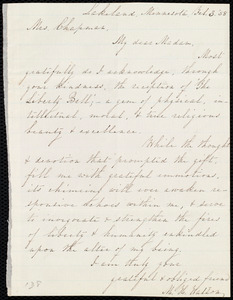 Lakeland, Minnesota, Feb. 3, '58
Mrs. Chapman,
My dear Madam,
Most
gratefully do I acknowledge, through
your kindness, the reception of The
Liberty Bell; a gem of physical, in-
tellectual, moral, & true religious
beauty & excellence.
While the thought
& devotion that prompted the gift,
fill me with grateful emotions,
its chiming will ever awaken re-
sponsive echoes within me, & serve
to invigorate & strengthen the fires
of liberty & humanity enkindled
upon the altar of my being.
I am truly your
grateful & obliged friend